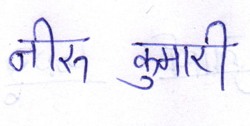 नीरू कुमारी